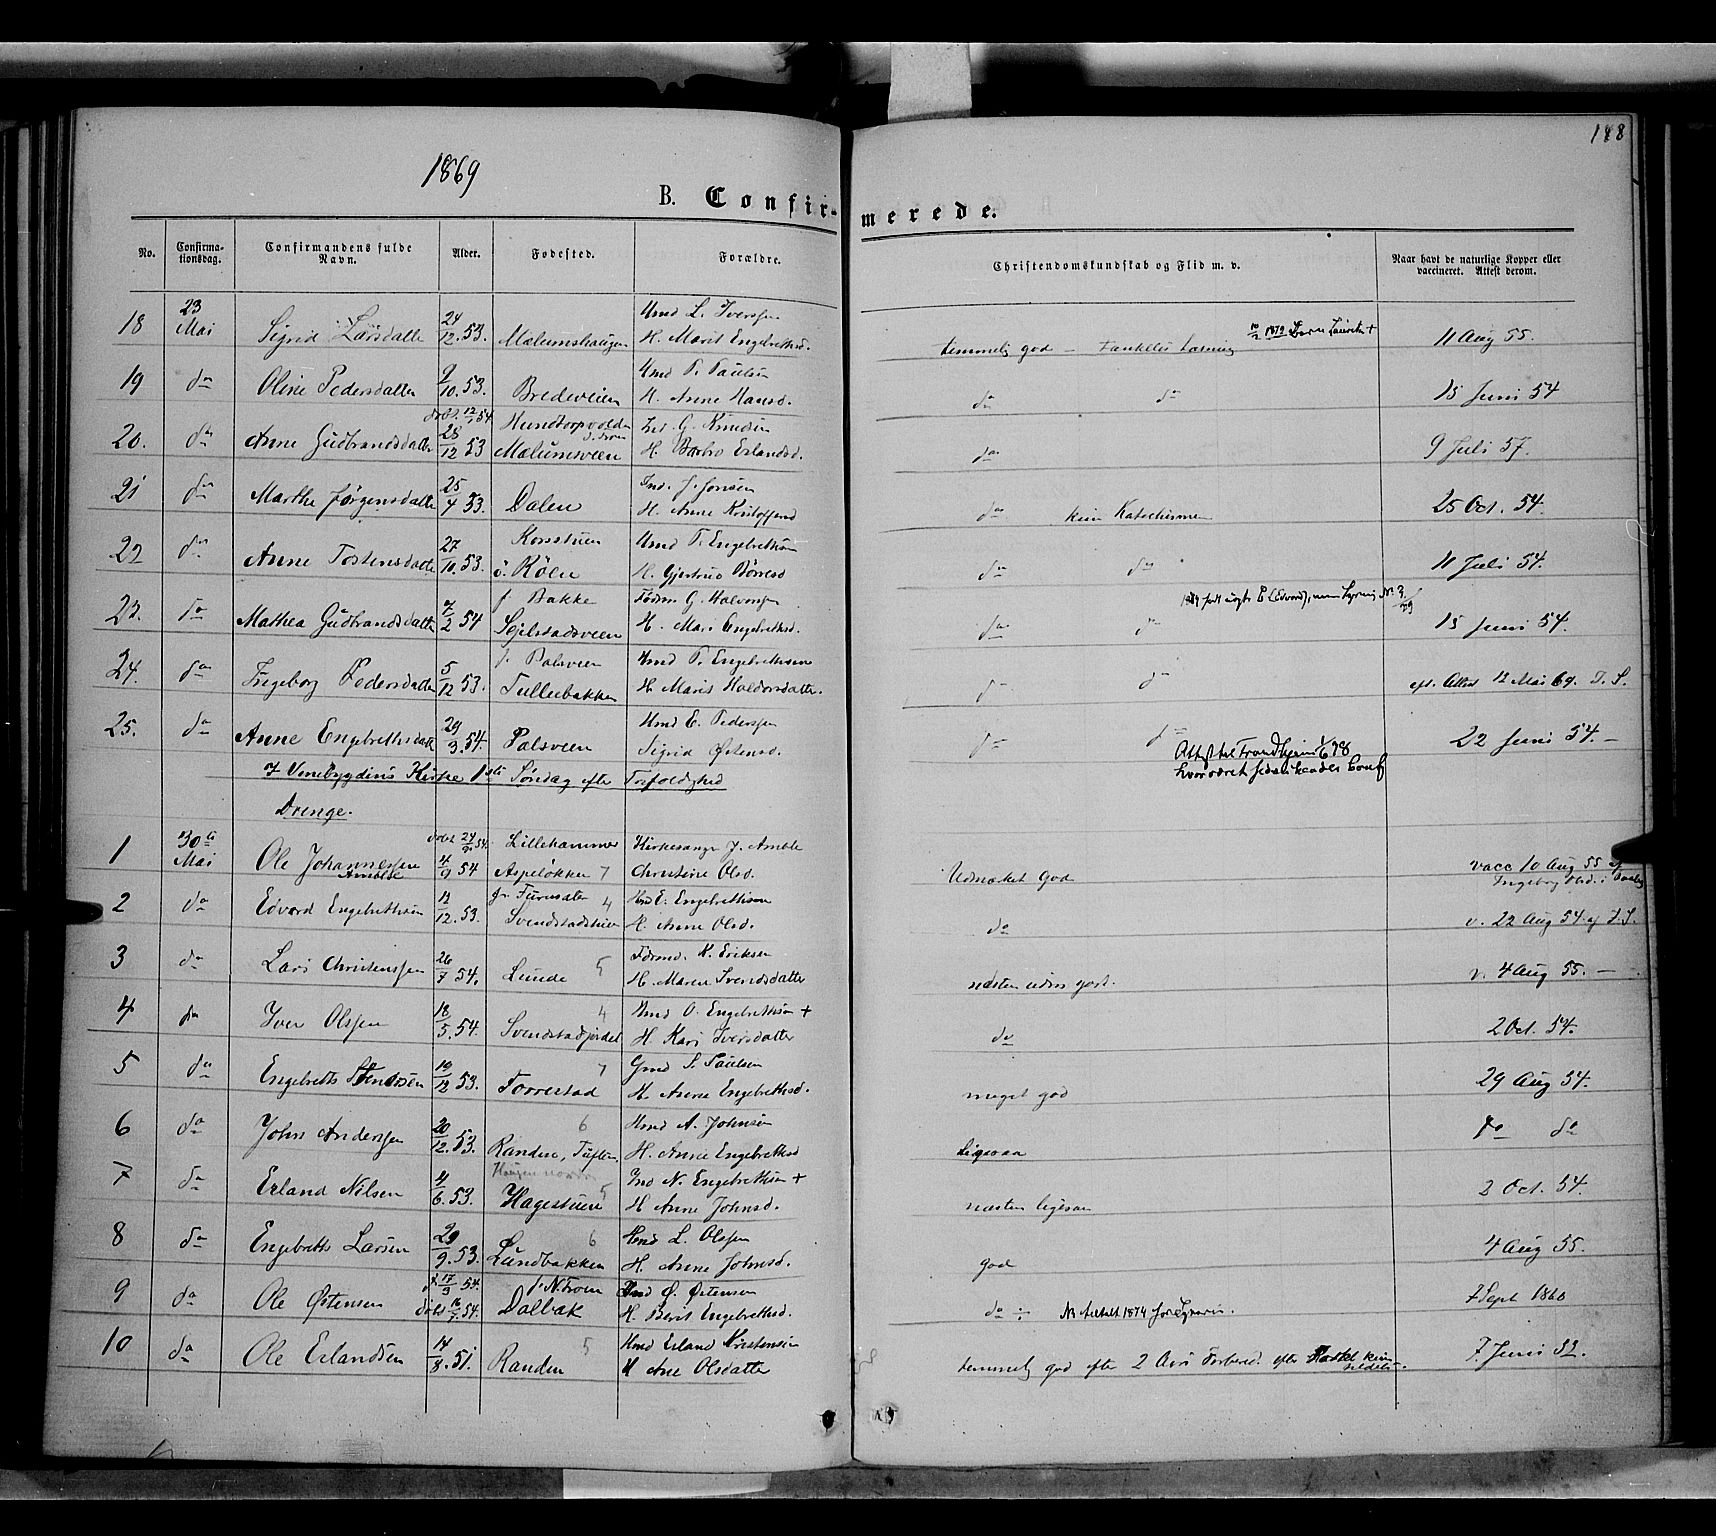 188
1869
B. Confirmerede.
No. Confirmationsdag. Confirmandens fulde Navn. Alder. Fødested. Forældre. Christendomskundskab og Flid m. v. Naar havt de naturlige Kopper eller vaccineret. Attest derom.
18 23 Mai Sigrid Larsdatte 24/12 53. Mælumshaugen Hmd L. Iverssen H. Marit Engebrethsd. temmelig god 11 Aug 55.
19 do Oline Pedersdatter 9/10 53. Bredeveien Hmd P. Paulsen H. Anne Hansd. do do 15 Juni 54
20. do Anne Gudbrandsdatte 28/12 53 døbt 12/1 54 Hundtorpvolden Mælumsveen G. Knudsen H. Barbro Erlandsd. do 9 Juli 57.
21 do Marthe Jørgensdatte 25/4 53. Dalen Ind. J. Jonsen H. Anne do kun Katechisme 25 Oct. 54.
22 do Anne Tostensdatte 27/10 53. Korsstuen ö. Röen Hmd T. Engebrethsen H. Gjertrud Børresd do do 11 Juli 54.
23. do Mathea Gudbrandsdatte 7/2 54 f. Bakke Sejelstadsveen G. Halvorssen H. Mari Engebrethsd. do do 15 Juni 54.
24. do Ingeborg Pedersdatte 5/12 53. f. Palsveen Tullebakken Hmd P. Engebrethsen H. Marit Haldorsdatte. do do Attest 12 Mai 69. I. S.
25. do Anne Engebrethsdatt 29/3 54. Palsveen Hmd E. Pederssen Sigrid Østensd. do do 22 Juni 54. –
Attest til Trondhjem 1/6 98
I Venebygdens Kirke 1ste Søndag efter Trefoldighed
Drenge.
1 30te Mai Ole Johannessen Amble 4/9 54 døbt 24/9 54. Lillehammer Aspeløkken 7 Kirkesanger J. Amble Christine Olsd. Udmærket God vacc 10 Aug 55 af Ingeborg Olsd. i
2 do Edvard Engebrethsen 12/12 53. Furusæter 4 Svendstadstuen Hmd E. Engebrethsen H. Anne Olsd. do v. 22 Aug 54. af I. S.
3 do Lars Christenssen 26/7 54. Lunde 5 K. Eriksen H. Maren Svendsdatter næsten udm. godt. v. 4 Aug 55. –
4 do Iver Olssen 18/5 54. Svendstadjordet 4 Hmd O. Engebrethsen + H. Kari Iversdatter do 2 Oct. 54.
5 do Engebreth 19/12 53. Forrestad 7 Gmd S. Paulsen H. Anne Engebrethsd. meget god 29 Aug 54.
6 do John Anderssen 20/12 53. Randen, Tuften 6 Hmd A. Johnsen H. Anne Engebrethsd Ligesaa do do
7 do Erland Nilsen 4/6 53. Haugen nordre Hagestuen 5 Ind N. Engebrethsen + H Anne Johnsd. næsten ligesaa 2 Oct. 54.
8 do Engebreth Larsen 29/9 53. Lundbakken 6 Hmd L. Olssen H. Anne Johnsd. god 4 Aug 55.
9 do Ole Østensen Dalbak Hmd Ø. Østensen H. Berit Engebrethsd. do 7 Sept 1860
10 do Ole Erlandsen 14/8 51. Randen 5 Hmd Erland Kristensen H Ane Olsdatte temmelig god efter 2 Aars Forbered. 7. Juni 52.